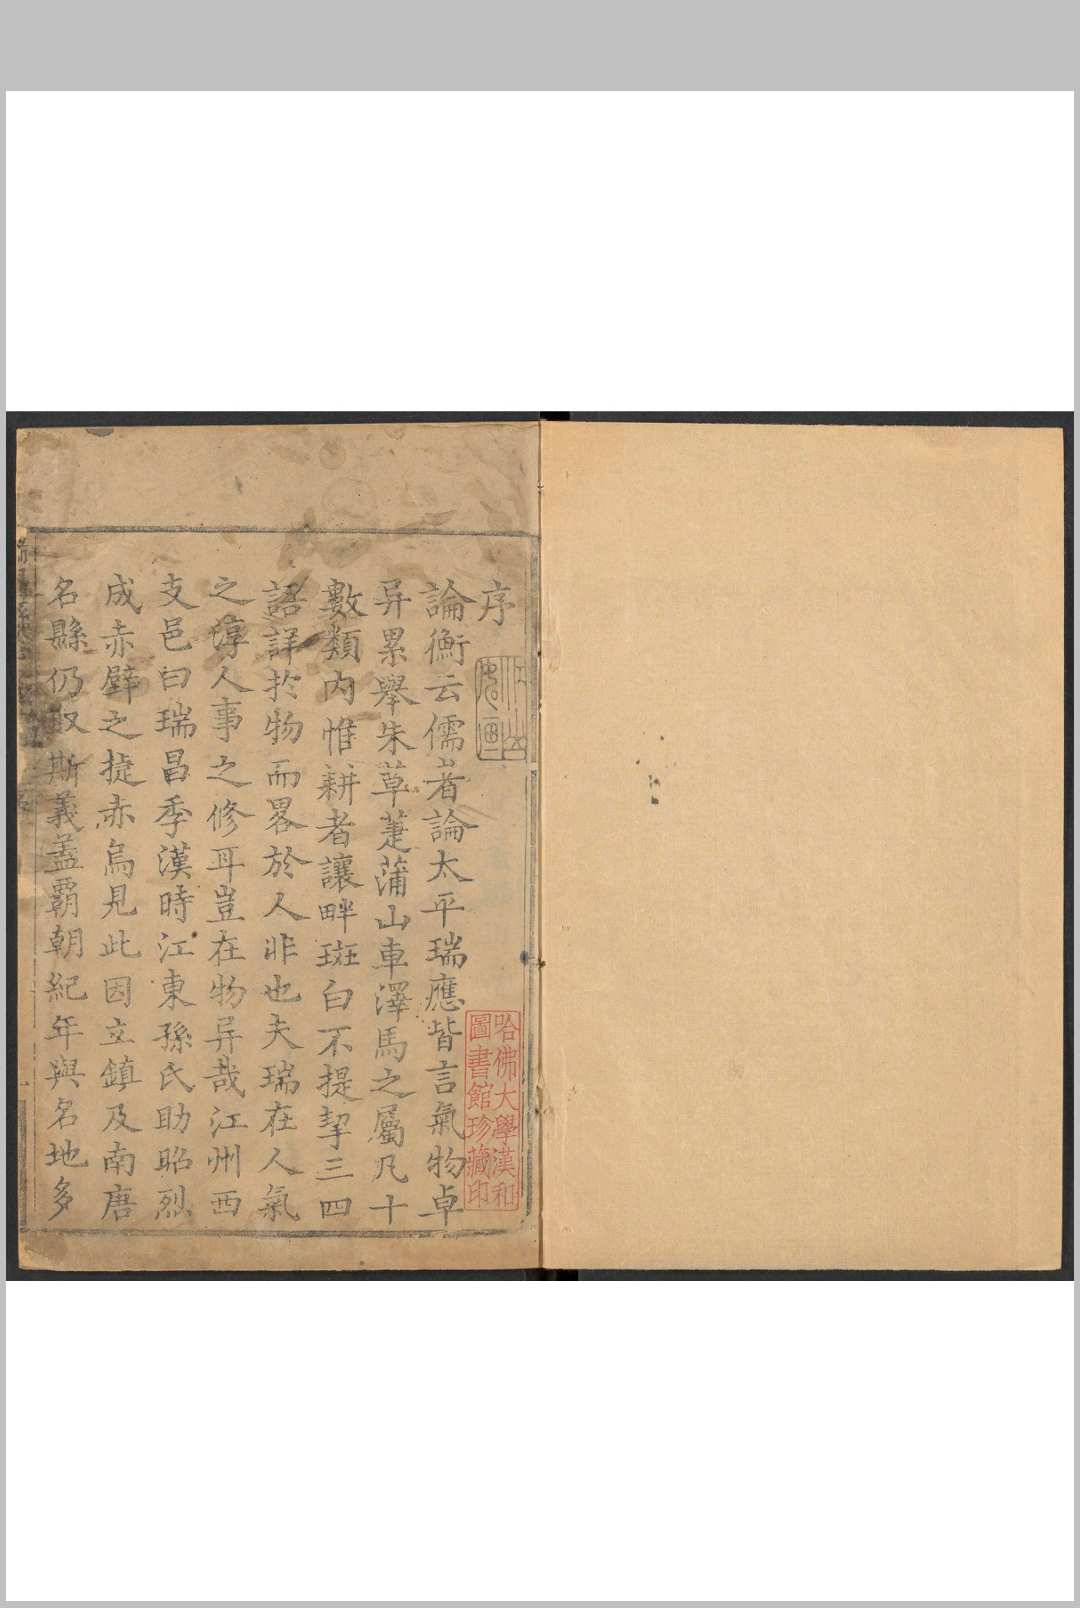 序
論衡云儒者論太平瑞應皆言氣物卓
异累舉朱草萐蒲山車澤馬之屬凡十
數類內惟耕者讓畔斑白不提挈三四
語詳於物而畧於人非也夫瑞在人氣
之淳人事之修耳豈在物异哉江州西
支邑曰瑞昌季漢時江東孫氏助昭烈
成赤壁之捷赤烏見此因立鎮及南唐
名縣仍取斯義蓋霸朝紀年與名地多
哈佛大學漢和
圖書館珍藏印